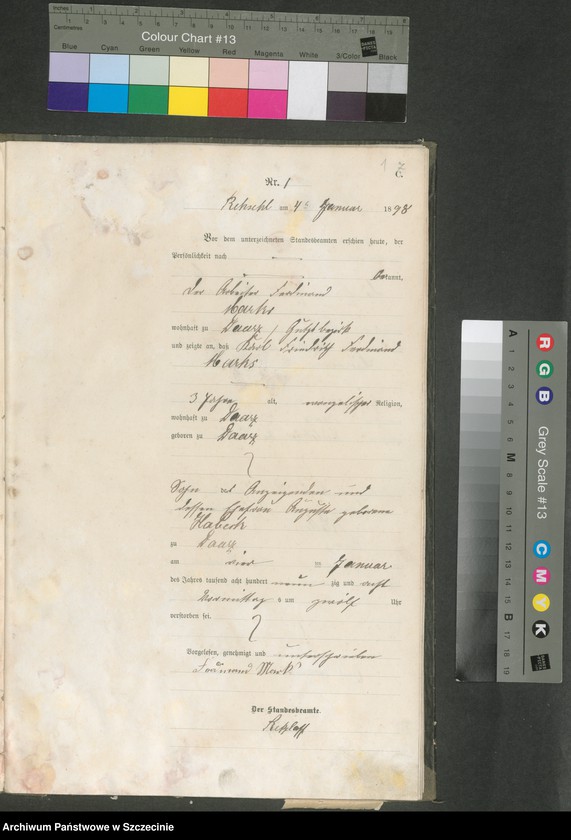 Inches
Centimetres
Colour Chart #13
Blue Cyan Green Yellow Red Magenta White 3/Color Black
1 7
C.
Nr. 1
am 4ten Januar 1898
Vor dem unterzeichneten Standesbeamten erschien heute, der
Persönlichkeit nach
bekannt,
der Arbeiter Ferdinand
Marks
wohnhaft zu Daarz, Gutsbezirk
und zeigte an, daß Karl Friedrich Ferdinand
Marks
3 Jahre alt, evangelischer Religion,
wohnhaft zu Daarz
geboren zu Daarz
Sohn des Anzeigenden und
dessen Ehefrau Auguste geborene
Habeck
zu Daarz
am vier ten Januar
des Jahres tausend acht hundert neun zig und acht
Vormittag s um zwölf Uhr
verstorben sei.
Vorgelesen, genehmigt und unterschrieben
Ferdinand Marks
Der Standesbeamte.
Retzlaff
A 1 2 3 4 5 6 M 8 9 10 11 12 13 14 15 B 17 18 19
R G B
Grey Scale #13
C M Y K
Archiwum Państwowe w Szczecinie